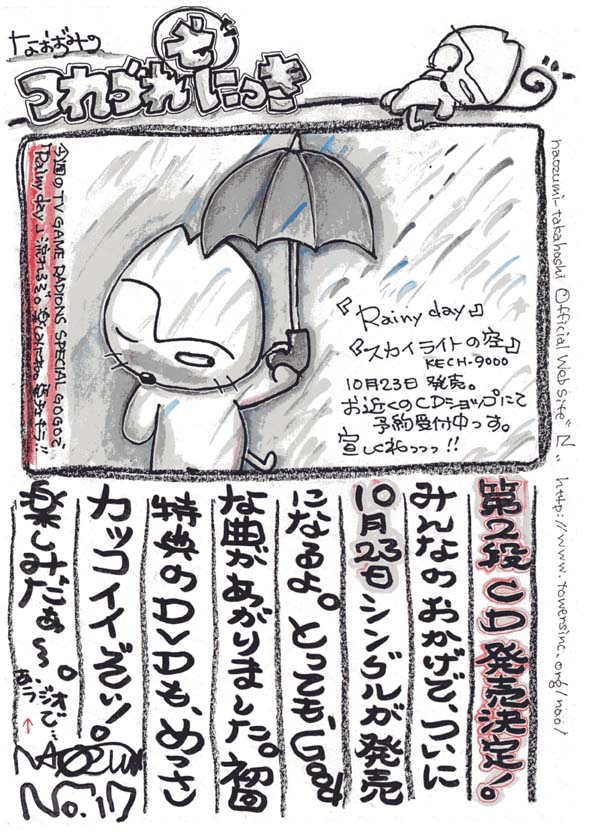 なおずみの
つれづれ
にっき
今週のTV GAME RADIONS SPECIAL GOGOで
『Rainy day』流れるぞ。
『Rainy day』
『スカイライトの空』
KECH-9000
10月23日 発売。
お近くのCDショップにて
予約受付中っす。
宣しくねっっっ!!
naozumi-takahashi Official Web Site "N" http://www.towersinc.org/nao/
第2段CD発売決定!
みんなのおかげで、ついに
10月23日シングルが発売
になるよ。とっても、Good
な曲があがりました。初回
特典のDVDも、めっさ
カッコイイぞぃ!。
楽しみだぁ〜。
あ、ラジオで…
↑
NAOZUMI
No.17